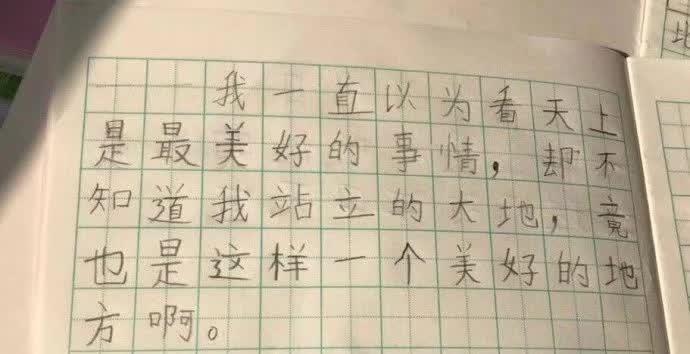 我一直以为看天上
是最美好的事情，却不
知道我站立的大地，竟
也是这样一个美好的地
方啊。